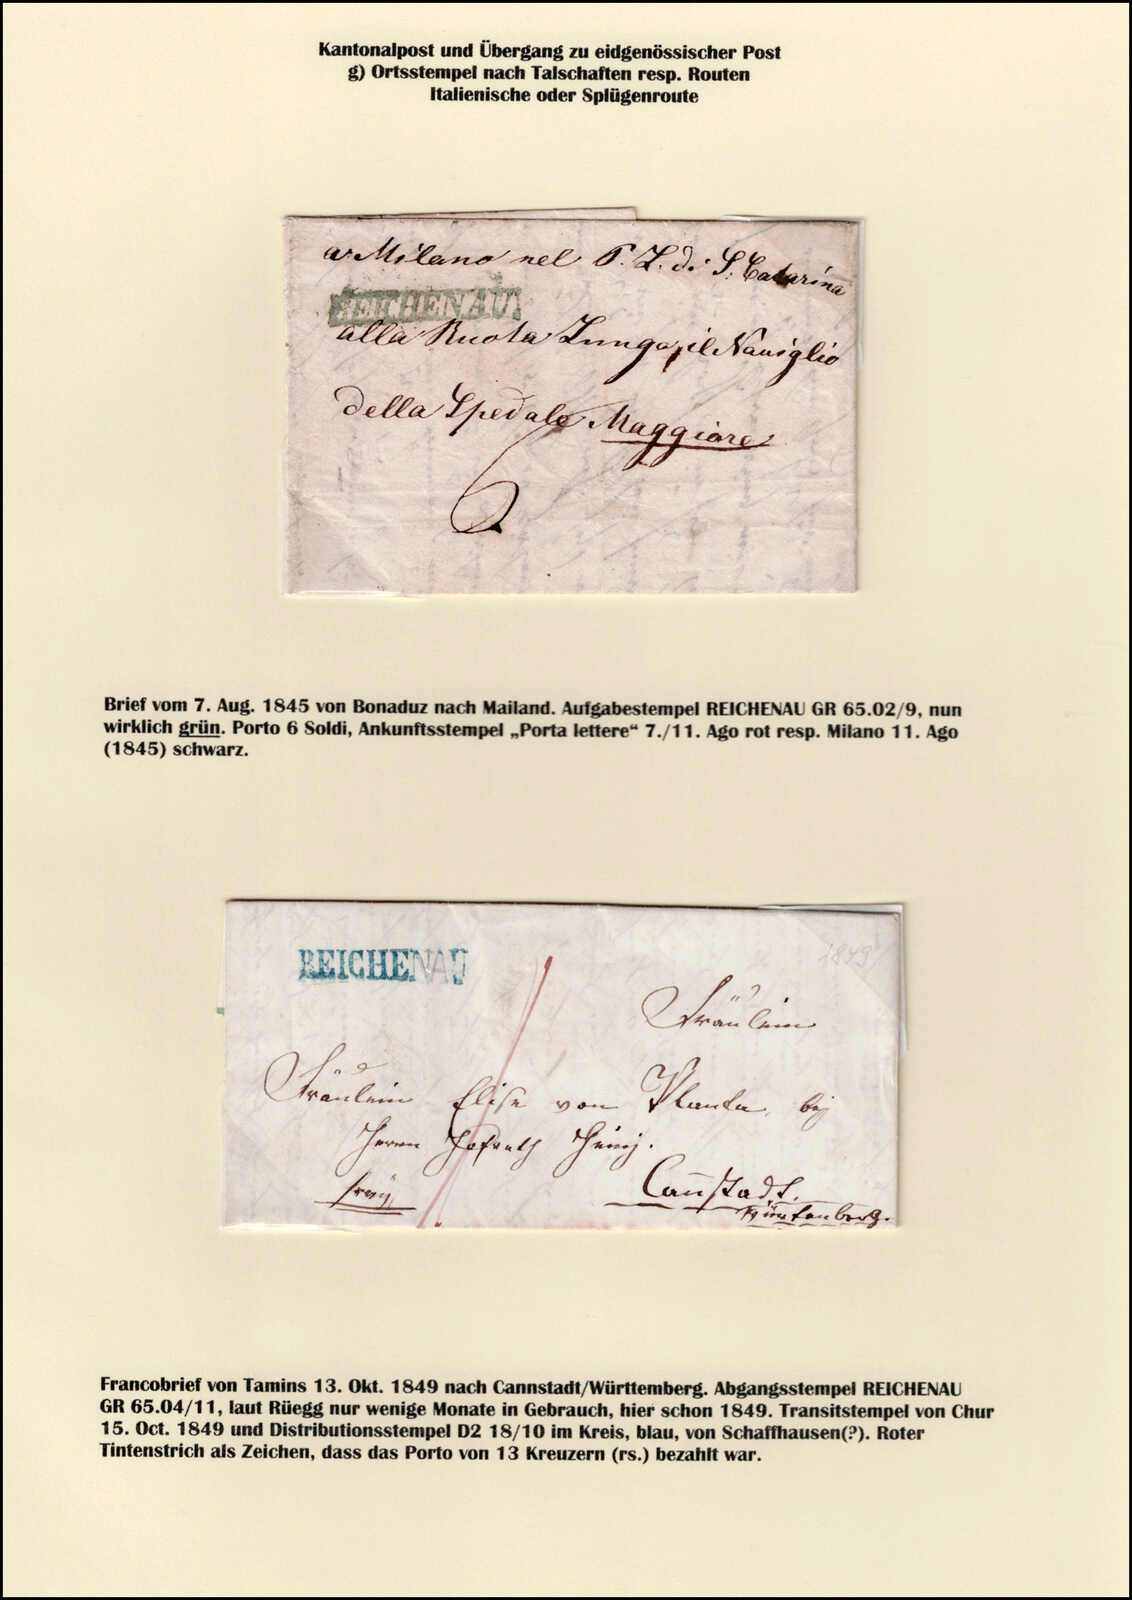 Kantonalpost und Übergang zu eidgenössischer Post
g) Ortsstempel nach Talschaften resp. Routen
Italienische oder Splügenroute
a Milano nel P. L. di S. Catarina
REICHENAU
alla Ruota Lunga, il Naviglio
della Spedale Maggiore
6
Brief vom 7. Aug. 1845 von Bonaduz nach Mailand. Aufgabestempel REICHENAU GR 65.02/9, nun
wirklich grün. Porto 6 Soldi, Ankunftsstempel „Porta lettere“ 7./11. Ago rot resp. Milano 11. Ago
(1845) schwarz.
REICHENAU
1849
Fräulein
Fräulein Elise von Planta, bej
Herrn Hofrath
Cannstadt.
Würtenberg.
Francobrief von Tamins 13. Okt. 1849 nach Cannstadt/Württemberg. Abgangsstempel REICHENAU
GR 65.04/11, laut Rüegg nur wenige Monate in Gebrauch, hier schon 1849. Transitstempel von Chur
15. Oct. 1849 und Distributionsstempel D2 18/10 im Kreis, blau, von Schaffhausen(?). Roter
Tintenstrich als Zeichen, dass das Porto von 13 Kreuzern (rs.) bezahlt war.